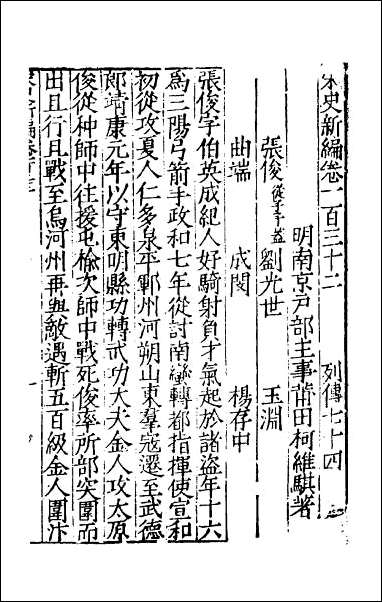 宋史新編卷一百三十二 列傳七十四
明南京戶部主事莆田柯維騏著
張俊 從子子蓋 劉光世 王淵
曲端 成閔 楊存中
張俊字伯英成紀人好騎射負才氣起於諸盜年十六
為三陽弓箭手政和七年從討南蠻轉都指揮使宣和
初從攻夏人仁多泉平鄆州河朔山東羣寇遷至武德
郎靖康元年以守東明縣功轉武功大夫金人攻太原
俊從种師中往援屯榆次師中戰死俊率所部突圍而
出且行且戰至烏河州再與敵遇斬五百級金人圍汴